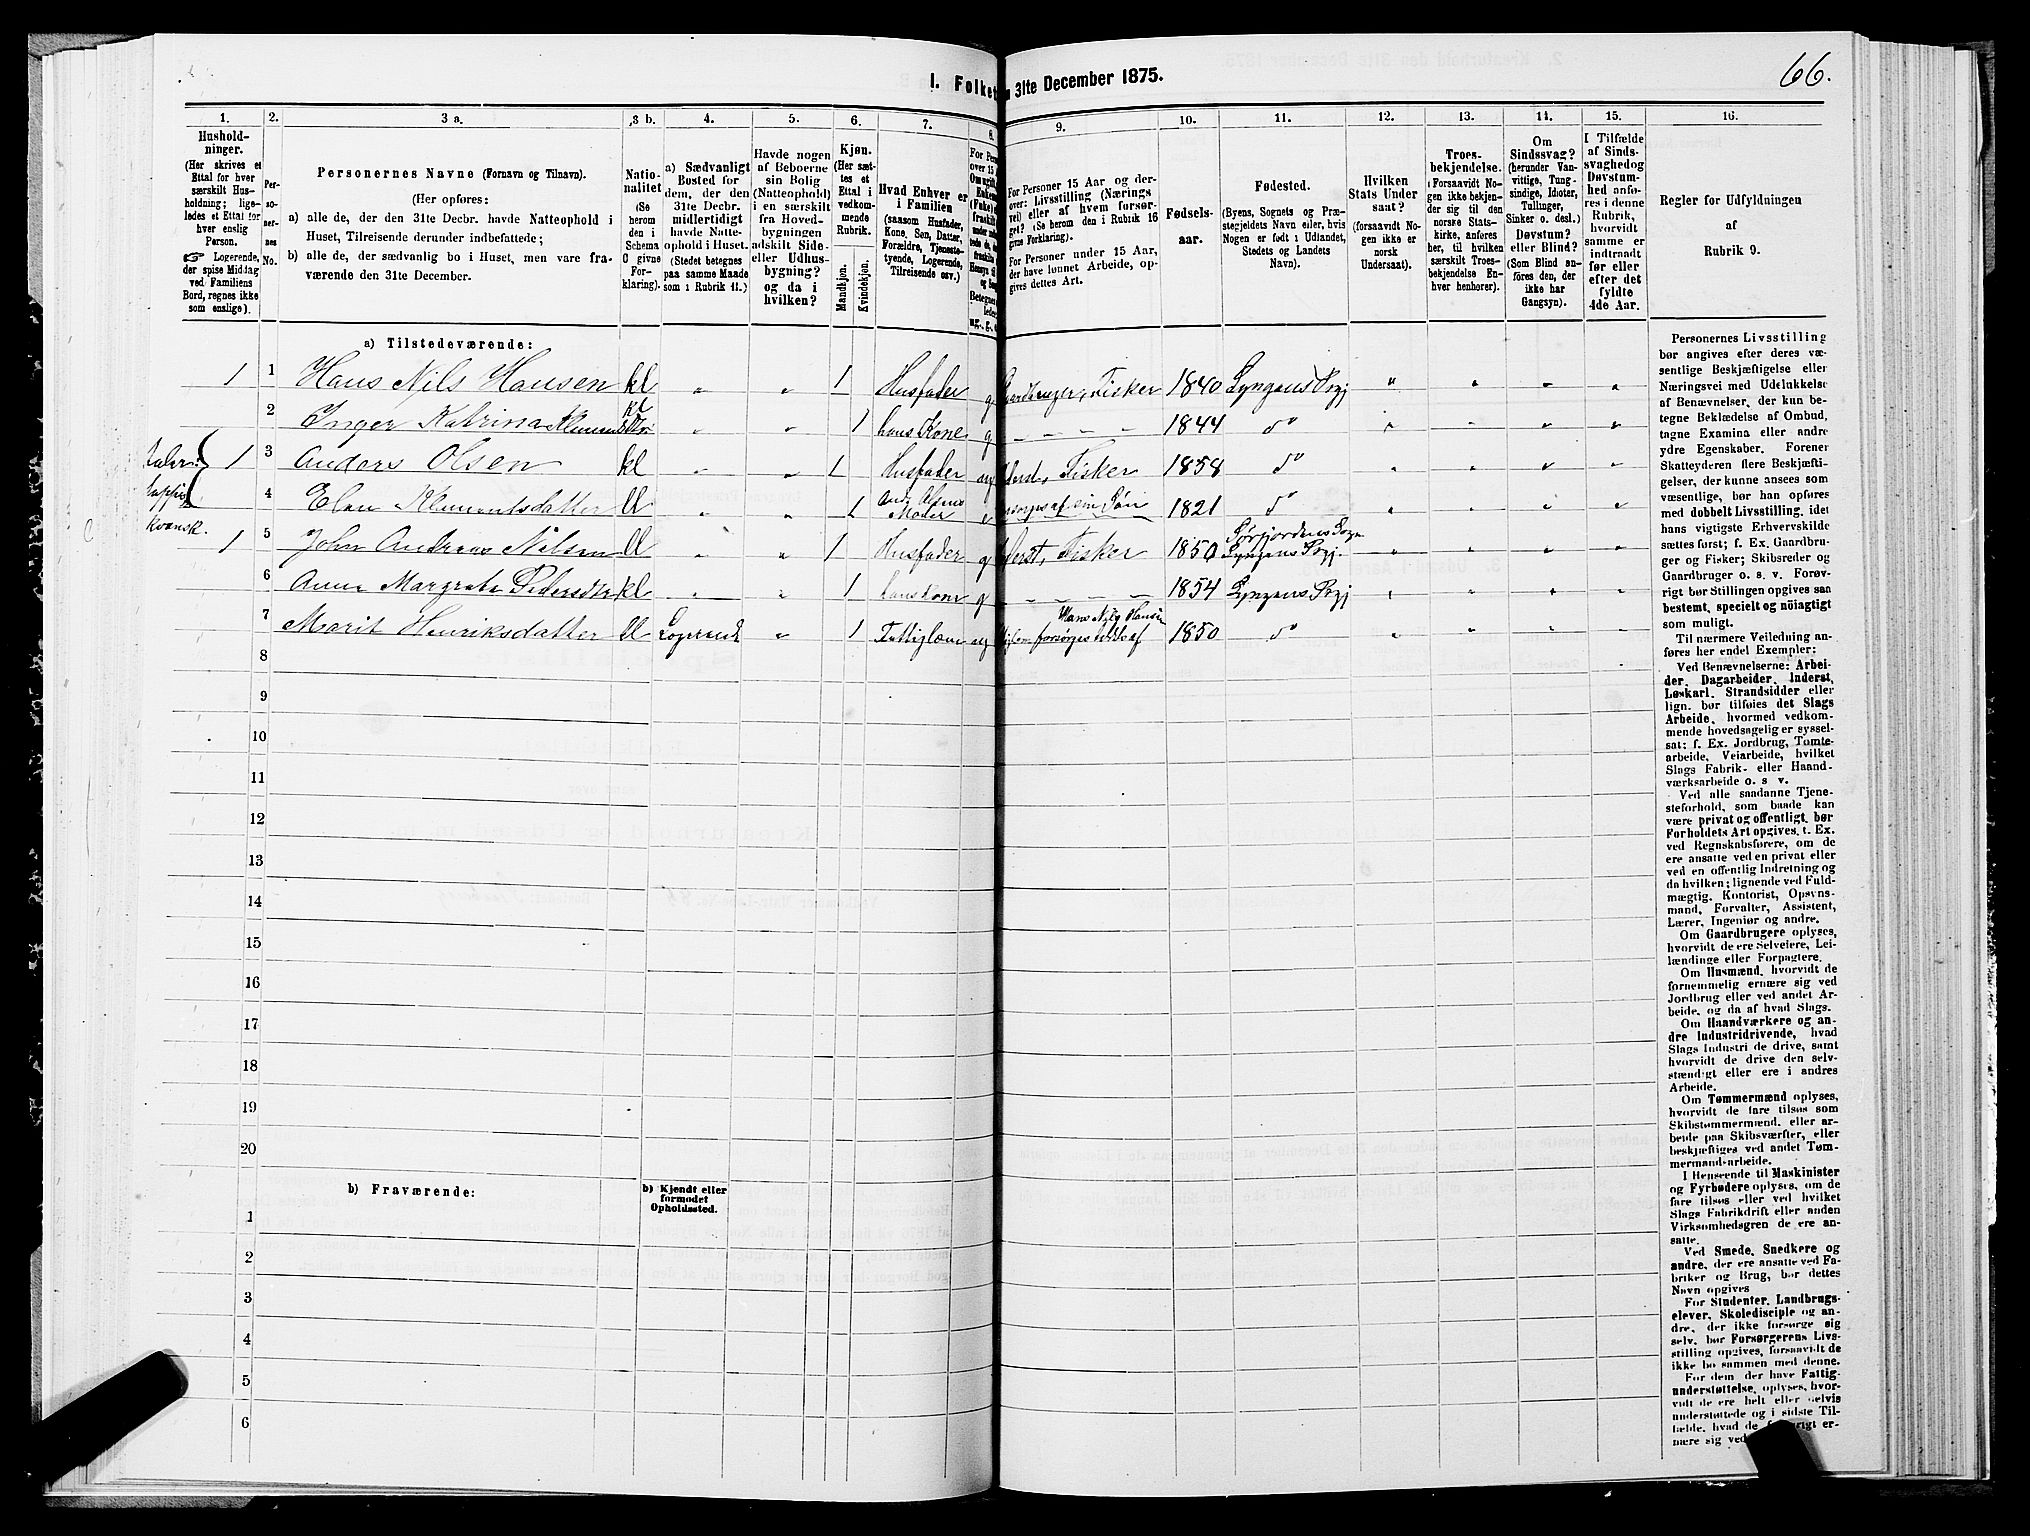 66.
1. Folket
n 31te December 1875.
1. 2. 3 a. 3 b. 4. 5. 6. 7. 8. 9. 10. 11. 12. 13. 14. 15. 16.
Hushold-
ninger.
(Her skrives et
Ettal for hver
særskilt Hus-
holdning; lige-
ledes et Ettal for
hver enslig
Person.
☞ Logerende,
der spise Middag
ved Familiens
Bord, regnes ikke
som enslige).
Per-
so-
ner-
nes
No.
Personernes Navne (Fornavn og Tilnavn).
(Her opføres:
a) alle de, der den 31te Decbr. havde Natteophold i
Huset, Tilreisende derunder indbefattede;
b) alle de, der sædvanlig bo i Huset, men vare fra-
værende den 31te December.
Natio-
nalitet
(Se
herom
den i
Schema
C givne
For-
klaring).
a) Sædvanligt
Bosted for
dem, der den
31te Decbr.
midlertidigt
havde Natte-
ophold i Huset.
(Stedet betegnes
paa samme Maade
som i Rubrik 11.)
Havde nogen
af Beboerne
sin Bolig
(Natteophold)
i en særskilt
fra Hoved-
bygningen
adskilt Side-
eller Udhus-
bygning?
og da i
hvilken?
Kjøn.
(Her sæt-
tes et
Ettal i
vedkom-
mende
Rubrik.
Mandkjøn.
Kvindekjøn.
Hvad Enhver er
i Familien
(saasom Husfader,
Kone, Søn, Datter,
Forældre, Tjeneste-
tyende, Logerende,
Tilreisende osv.)
For Personer 15 Aar og der-
over: Livsstilling (Nærings
vei) eller af hvem forsør-
get? (Se herom den i Rubrik 16
givne Forklaring).
For Personer under 15 Aar,
der have lønnet Arbeide, op-
gives dettes Art.
Fødsels-
aar.
Fødested.
(Byens, Sognets og Præ-
stegjeldets Navn eller, hvis
Nogen er født i Udlandet,
Stedets og Landets
Navn).
Hvilken
Stats Under
saat?
(forsaavidt No-
gen ikke er
norsk
Undersaat).
Troes-
bekjendelse.
(Forsaavidt No-
gen ikke bekjen-
der sig til den
norske Stats-
kirke, anføres
her, til hvilken
særskilt Troes-
bekjendelse En-
hver henhører).
Om
Sindssvag?
(herunder Van-
vittige, Tung-
sindige, Idioter,
Tullinger,
Sinker o. desl.)
Døvstum?
eller Blind?
(Som Blind an-
føres den, der
ikke har
Gangsyn).
I Tilfælde
af Sinds-
svaghed og
Døvstum-
hed anfø-
res i denne
Rubrik,
hvorvidt
samme er
indtraadt
før eller
efter det
fyldte
4de Aar.
Regler for Udfyldningen
af
Rubrik 9.
a) Tilstedeværende:
1 1 Hans Nils Hansen kl „ „ 1 Husfader g Gaardbruger, Fisker 1840 Lyngens Prgj „ „ „ „
2 Inger Katrina „ „ 1 hans Kone g 1844 do
1 3 Anders Olsen kl „ „ 1 Husfader ug Inderst, Fisker 1858 do
4 Elen Klementsdatter kl „ „ 1 Ands Olsens Moder e forsørges af sin Søn 1821 do
kvænsk.
1 5 John Andreas Nilsen kl „ „ 1 Husfader g Inderst, Fisker 1850 Sørfjordens Sogn Lyngens Prgj.
6 Anne Margrete Pedersdtr kl „ „ 1 hans Kone g 1854 Lyngens Prgj
7 Marit Henriksdatter kl „ 1 Fattiglem ug forsørges af Hans Nils Hansen 1850 do
8
9
10
11
12
13
14
15
16
17
18
19
20
b) Fraværende:
b) Kjendt eller
formodet
Opholdssted.
1
2
3
4
5
6
Personernes Livsstilling
bør angives efter deres væ-
sentlige Beskjæftigelse eller
Næringsvei med Udelukkelse
af Benævnelser, der kun be-
tegne Beklædelse af Ombud,
tagne Examina eller andre
ydre Egenskaber. Forener
Skatteyderen flere Beskjæfti-
gelser, der kunne ansees som
væsentlige, bør han opføres
med dobbelt Livsstilling, idet
hans vigtigste Erhvervskilde
sættes først; f. Ex. Gaardbru-
ger og Fisker; Skibsreder og
Gaardbruger o. s. v. Forøv-
rigt bør Stillingen opgives saa
bestemt, specielt og nøiagtigt
som muligt.
Til nærmere Veiledning an-
føres her endel Exempler:
Ved Benævnelserne: Arbei-
der, Dagarbeider, Inderst,
Løskarl, Strandsidder eller
lign. bør tilføies det Slags
Arbeide, hvormed vedkom-
mende hovedsagelig er syssel-
sat: f. Ex. Jordbrug, Tømte-
arbeide, Veiarbeide, hvilket
Slags Fabrik- eller Haand-
værksarbeide o. s v.
Ved alle saadanne Tjene-
steforhold, som baade kan
være privat og offentligt, bør
Forholdets Art opgives, t. Ex.
ved Regnskabsførere, om de
ere ansatte ved en privat eller
ved en offentlig Indretning og
da hvilken; lignende ved Fuld-
mægtig, Kontorist, Opsyns-
mand, Forvalter, Assistent,
Lærer, Ingeniør og andre.
Om Gaardbrugere oplyses,
hvorvidt de ere Selveiere, Lei-
lændinge eller Forpagtere.
Om Husmænd, hvorvidt de
fornemmelig ernære sig ved
Jordbrug eller ved andet Ar-
beide, og da af hvad Slags.
Om Haandværkere og an-
dre Industridrivende, hvad
Slags Industri de drive, samt
hvorvidt de drive den selv-
stændigt eller ere i andres
Arbeide.
Om Tømmermænd oplyses,
hvorvidt de fare tilsøs som
Skibstømmermænd, eller ar-
beide paa Skibsværfter, eller
beskjæftiges ved andet Tøm-
mermand-arbeide.
I Henseende til Maskinister
og Fyrbødere oplyses, om de
fare tilsøs eller ved hvilket
Slags Fabrikdrift eller anden
Virksomhedsgren de ere an-
satte.
Ved Smede, Snedkere og
andre, der ere ansatte ved Fa-
briker og Brug, bør dettes
Navn opgives
For Studenter, Landbrugs-
elever, Skoledisciple og an-
dre, der ikke forsørge sig
selv, bør Forsørgerens Livs-
stilling opgives, forsaavidt de
ikke bo sammen med denne.
For dem, der have Fattig-
understøttelse, oplyses, hvor-
vidt de ere helt eller delvis
understøttede og i sidste Til-
fælde, hvad de forøvrigt er-
nære sig ved